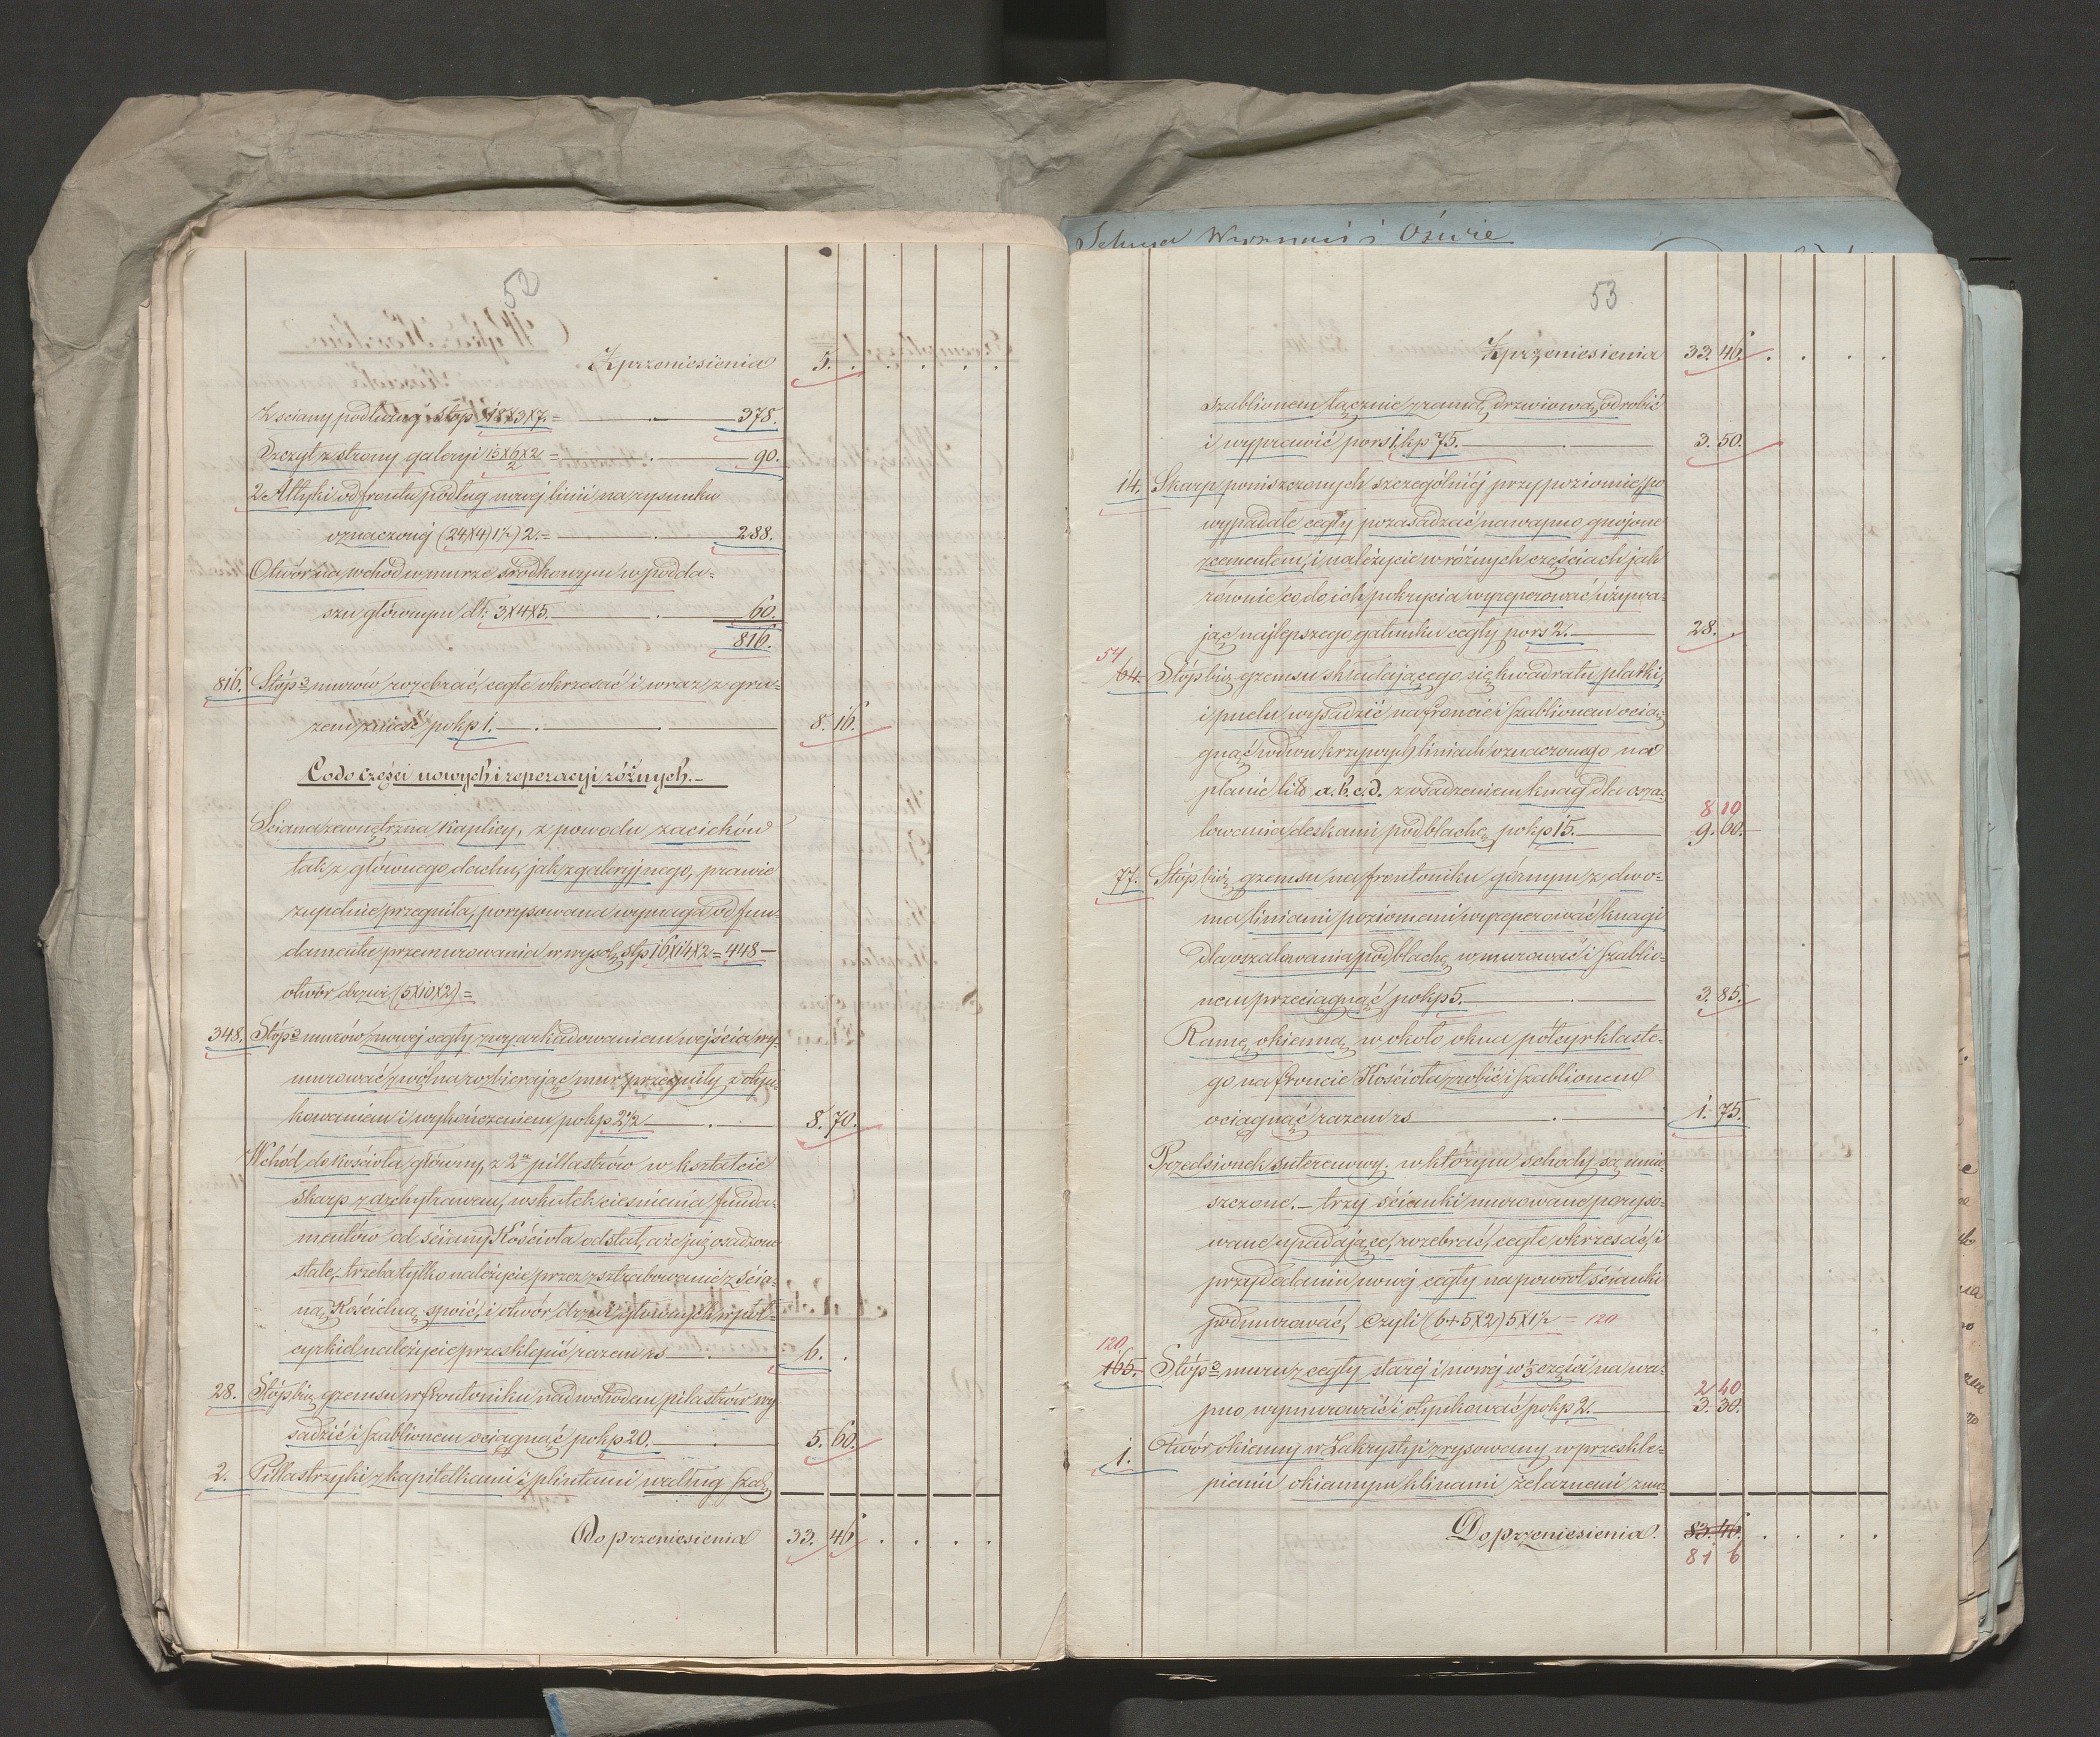 52
Z przeniesienia 5. . . . . .
Z sciany podłużnej stóp 18X3X7.= — 378.
Szczyt z strony galeryi 15X6X2/2 = — 90.
2 Attyki od frontu podług nowej linii na rysunku
oznaczonej (24X4)1½)2.= — 288.
Otwór na wchod w murze środkowym w podda-
szu głównym dt. 3X4X5. — 60.
816.
816. Stóp 3 murów rozebrać, cegłe okrzesać i wraz z gru-
zem znieść po kp 1. — 8. 16.
Co do części nowych i reperacyi różnych.—
Sciana zewnętrzna Kaplicy, z powodu zacieków
tak z głównego dachu, jak z galeryjnego, prawie
zupełnie przegniła, porysowana wymaga od fun-
damentu przemurowania w wysok. stp 16X14X2=448—
otwór drzwi (5X10X2)=
348. Stóp 3 murów nowej cegły z wyarkadowaniem wejścia wy-
murować zwolna rozbierając mur przegniły z otyn-
kowaniem i wykończeniem po kp 2½ — 8. 70.
Wchód do kościoła główny, z 2ch pillastrów w kształcie
skarp z architrawem, wskutek ciesnienia funda-
mentów od ściany Kościoła odstał, a że już osadzone
stale, trzeba tylko należycie przez zsztrabowanie z ścia-
ną Kościelną spoić, i otwór drzwi głównych w pół-
cyrkiel należycie przesklepić razem rs — 6. .
28. Stóp bież gzemsu w frontoniku nad wchodem pilastrów wy
sadzić i szablionem ociągnąć po kp 20. — 5. 60.
2. Pillastrzyki z kapitelkami i plintami według sza-
Do przeniesienia 33. 46 . . . .
Z przeniesienia 33. 46. . . . .
53
szablionem łącznie z ramą drzwiową, odrobić
i wyprawić po rs 1. kp 75. — 3. 50.
14. Skarp poniszczonych szczególniej przy poziomie, po
wypadałe cegły pozasadzać na wapno gnojone
z cementem, i należycie w różnych częściach jak
równie co do ich pokrycia wyreperować używa-
jąc najlepszego gatunku cegły po rs 2. — 28. .
54
64. Stóp bież gzemsu składającego się kwadratu płatki,
i puclu wysadzić na froncie i szablionem ocią-
gnąć w dwu krzywych liniach oznaczonego na
planie lit. a. b. c. d. z osadzeniem knag dla osza-
8 10
lowania deskami pod blachę po kp 15. — 9. 60.
77. Stóp bież gzemsu na frontoniku górnym z dwo-
ma liniami poziomemi wyreperować knagi
dla oszalowania pod blachę wmurować i szablio-
nem przeciągnąć po kp 5. — 3. 85.
Ramę okienną w około okna półcyrklaste-
go na froncie Kościoła zrobić i szablionem
ociągnąć razem rs — 1. 75.
Przedsionek suterenowy. w którym schody są umie-
szczone.— trzy ścianki murowane poryso-
wane upadające, rozebrać, cegłe okrzesać, i
przy dodaniu nowej cegły na powrót ścianki
podmurować, czyli (6+5X2)5X1½ = 120
120
165. Stóp 3 muru z cegły starej i nowej w ⅓ części na wa-
2 40.
pno wymurować i otynkować po kp 2. — 3. 30.
1. Otwór okienny w Zakrystyi zrysowany w przeskle-
pieniu okiennym klinami żelaznemi zmo-
Do przeniesienia. 83. 46. . . . .
81 6